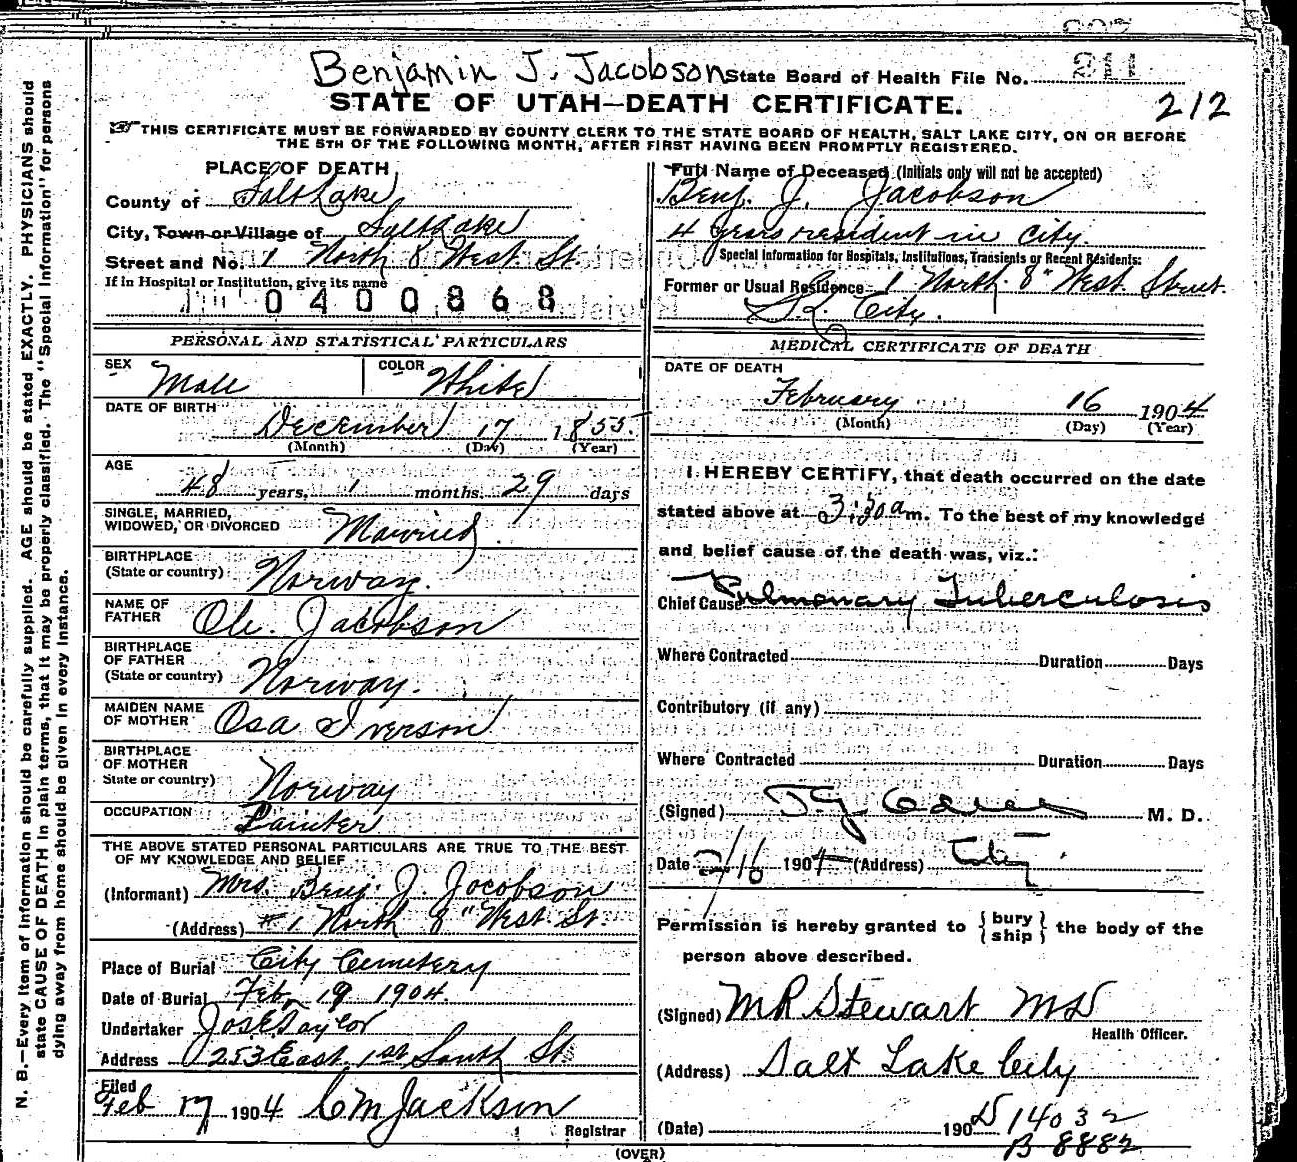 Benjamin J. Jacobson State Board of Health File No. 211
212
STATE OF UTAH—DEATH CERTIFICATE.
THIS CERTIFICATE MUST BE FORWARDED BY COUNTY CLERK TO THE STATE BOARD OF HEALTH, SALT LAKE CITY, ON OR BEFORE
THE 5TH OF THE FOLLOWING MONTH, AFTER FIRST HAVING BEEN PROMPTLY REGISTERED.
PLACE OF DEATH
County of Salt Lake
City, Town or Village of Salt Lake
Street and No. 1 North 8 West St
If in Hospital or Institution, give its name
0400868
Full Name of Deceased (Initials only will not be accepted)
Benj. J. Jacobson
4 years resident in City.
Special Information for Hospitals, Institutions, Transients or Recent Residents:
Former or Usual Residence 1 North 8" West Street.
S.L. City.
PERSONAL AND STATISTICAL PARTICULARS
SEX Male COLOR White
DATE OF BIRTH
December 17 1855.
(Month) (Day) (Year)
AGE
48 years, 1 months, 29 days
SINGLE, MARRIED,
WIDOWED, OR DIVORCED Married.
BIRTHPLACE
(State or country) Norway.
NAME OF
FATHER Ole. Jacobson
BIRTHPLACE
OF FATHER
(State or country) Norway.
MAIDEN NAME
OF MOTHER Osa Iverson
BIRTHPLACE
OF MOTHER
State or country) Norway
OCCUPATION Painter
THE ABOVE STATED PERSONAL PARTICULARS ARE TRUE TO THE BEST
OF MY KNOWLEDGE AND BELIEF
(Informant) Mrs. Benj. J. Jacobson
(Address) # 1 North 8" West St.
Place of Burial City Cemetery
Date of Burial Feb. 19 1904.
Undertaker Jos E Taylor
Address 253 East 1st South St
Filed
Feb 17 1904 C M Jackson
Registrar
MEDICAL CERTIFICATE OF DEATH
DATE OF DEATH
February 16 1904
(Month) (Day) (Year)
I HEREBY CERTIFY, that death occurred on the date
stated above at 3:30 a m. To the best of my knowledge
and belief cause of the death was, viz.:
Chief Cause Pulmonary Tuberculosis
Where Contracted Duration Days
Contributory (if any)
Where Contracted Duration Days
(Signed) M. D.
Date 2/16 1904 (Address) City
Permission is hereby granted to {bury
ship} the body of the
person above described.
(Signed) M R Stewart MD
Health Officer.
(Address) Salt Lake City
(Date) 190
D 14032
B 8882
(OVER)
N. B.—Every item of information should be carefully supplied. AGE should be stated EXACTLY. PHYSICIANS should
state CAUSE OF DEATH in plain terms, that it may be properly classified. The "Special Information" for persons
dying away from home should be given in every instance.